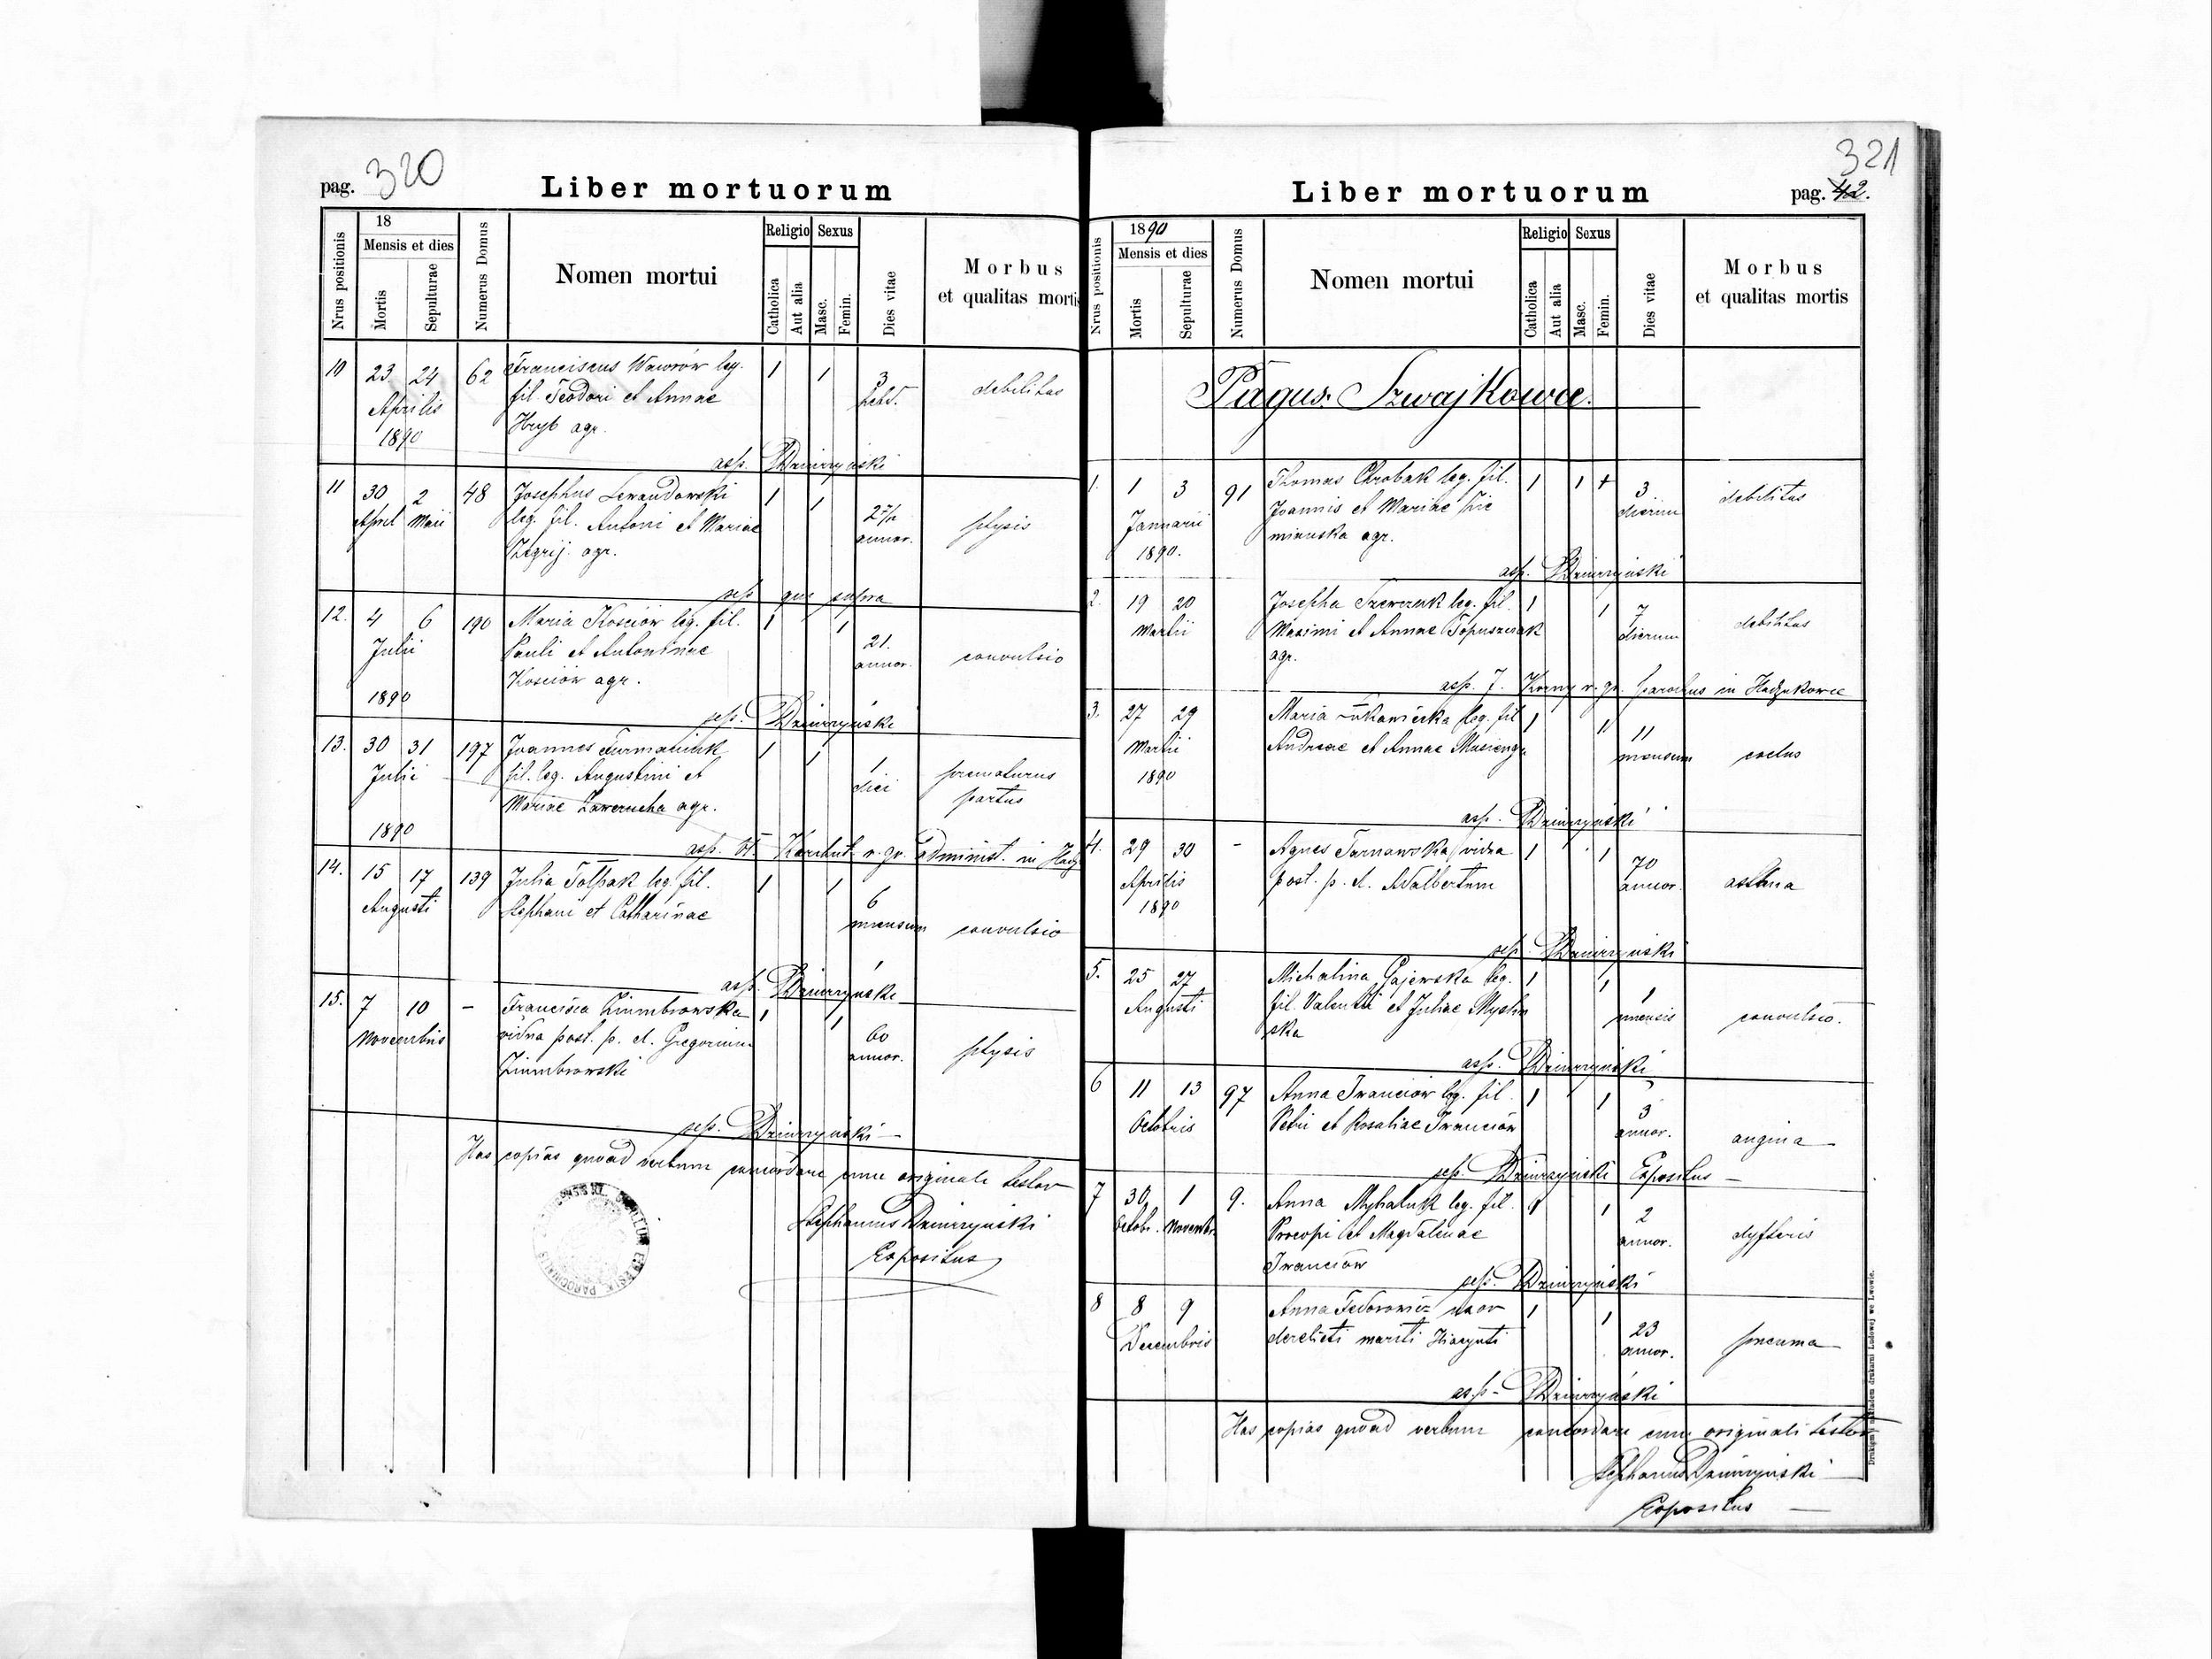 pag. 320
Liber mortuorum
Nrus positionis
18
Mensis et dies
Mortis
Sepulturae
Numerus Domus
Nomen mortui
Religio
Catholica
Aut alia
Sexus
Masc.
Femin.
Dies vitae
Morbus
et qualitas mortis
10 23 24 62 Franciscus Wawrów leg. 1 1 3 debilitas
Aprilis fil. Teodori et Annae hebd.
1890 Hryb agr.
asp. Dziurzyński
11 30 2 48 Josephus Lewandowski 1 1 2 7/12 ptysis
April Maii leg. fil. Antoni et Mariae annor.
agr.
asp. qui supra
12. 4 6 190 Maria Kościów leg. fil. 1 1 21. convulsio
Julii Pauli et Antoninae annor.
1890 Kościów agr.
asp. Dziurzyński
13. 30 31 197 Joannes Furmaniuk 1 1 1 prematurus
Julii fil. leg. Augustini et diei partus
1890 Mariae Zawerucha agr.
asp. r. gr. Administ. in
14. 15 17 139 Julia Tołpak leg. fil. 1 1 6 convulsio
Augusti Stephani et Catharinae mensium
asp. Dziurzyński
15. 7 10 - Francisca Zimmbrowska 1 1 60 ptysis
Novembris vidua post. p. d. Gregorium annor.
Zimmbrowski
asp. Dziurzyński
Has copias quoad verbum concordare cum originale testor
Stephanus Dziurzyński
Expositus
Liber mortuorum
321
pag. 42.
Nrus positionis
1890
Mensis et dies
Mortis
Sepulturae
Numerus Domus
Nomen mortui
Religio
Catholica
Aut alia
Sexus
Masc.
Femin.
Dies vitae
Morbus
et qualitas mortis
Pagus: Szwajkowce.
1. 1 3 91 Thomas Chrobak leg. fil. 1 1 + 3 debilitas
Januarii Joannis et Mariae Zie dierum
1890. mianska agr.
asp. Dziurzyński
2. 19 20 Josepha Szewczuk leg. fil. 1 1 7 debilitas
Martii Maximi et Annae Topuszczak dierum
agr.
asp. J. r. gr. parochus in Hadynkowce
3. 27 29 Maria leg. fil 1 11 11
Martii Andreae et Annae mensium
1890
asp. Dziurzyński
4. 29 30 - Agnes Tarnawska vidua 1 1 70 asthma
Aprilis post. p. d. Adalbertum annor.
1890
asp. Dziurzyński
5. 25 27 Michalina Gajewska leg. 1 1 1 convulsio.
Augusti fil. Valenti et Juliae Myslin mensis
ska
asp. Dziurzyński
6 11 13 97 Anna Iwanciów leg. fil. 1 1 3 angina
Octobris Petri et Rosaliae Iwanciów annor.
asp. Dziurzyński Expositus
7 30 1 9. Anna Myhaluk leg. fil. 1 1 2 dyfteris
Octobr. Novembr. Procopi et Magdalenae annor.
Iwanciów
asp. Dziurzyński
8 8 9 Anna Fedorowicz uxor 1 1 23 pneuma
Decembris derelicti mariti Hiacynti annor.
asp. Dziurzyński
Has copias quoad verbum concordare cum originali testor
Stephanus Dziurzyński
Expositus